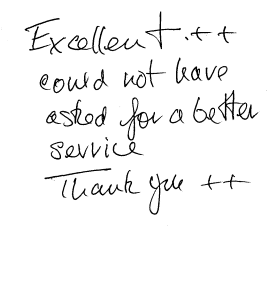 Excellent.++
could not have
asked for a better
service
Thank you ++